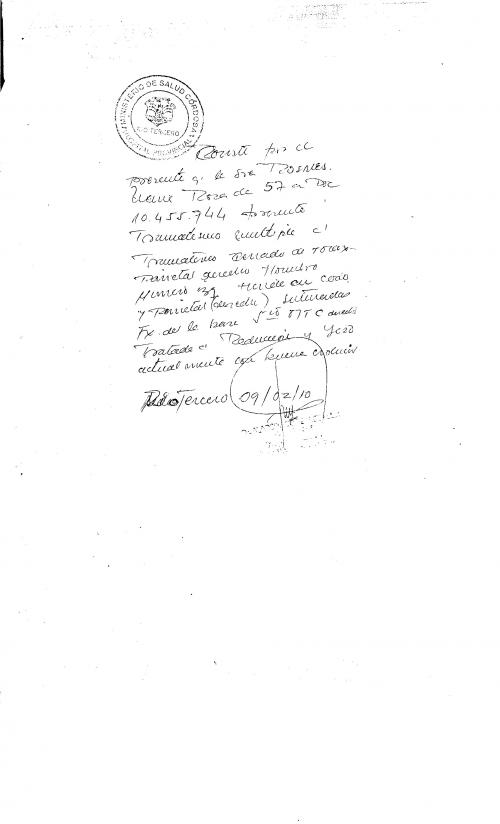 MINISTERIO DE SALUD CÓRDOBA
RIO TERCERO
HOSPITAL PROVINCIAL
Conste por el
presente q. la Sra
Rosa de 57 a Doc
10.455.744 presento
Traumatismo multiple c/
Traumatismo Cerrado de Torax
Parietal derecho Hombro
Herida en codo
y Parietal (derecha) suturadas
Fx. de la base 5to MTC derecho
Tratada c/ Reduccion y Yeso
actualmente con buena evolucion
Rio Tercero 09/02/10